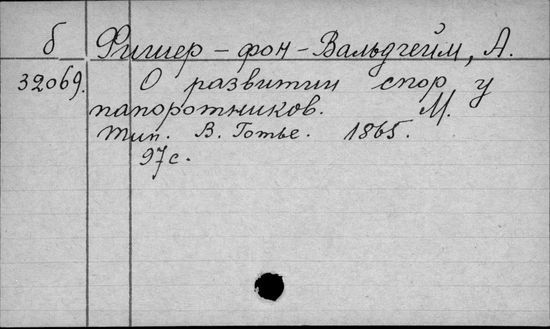 б Фишер-фон-Вальдгейм, А.
32069. О развитии спор у
папоротников. М.
Тип. В. Готье. 1865.
97 с.